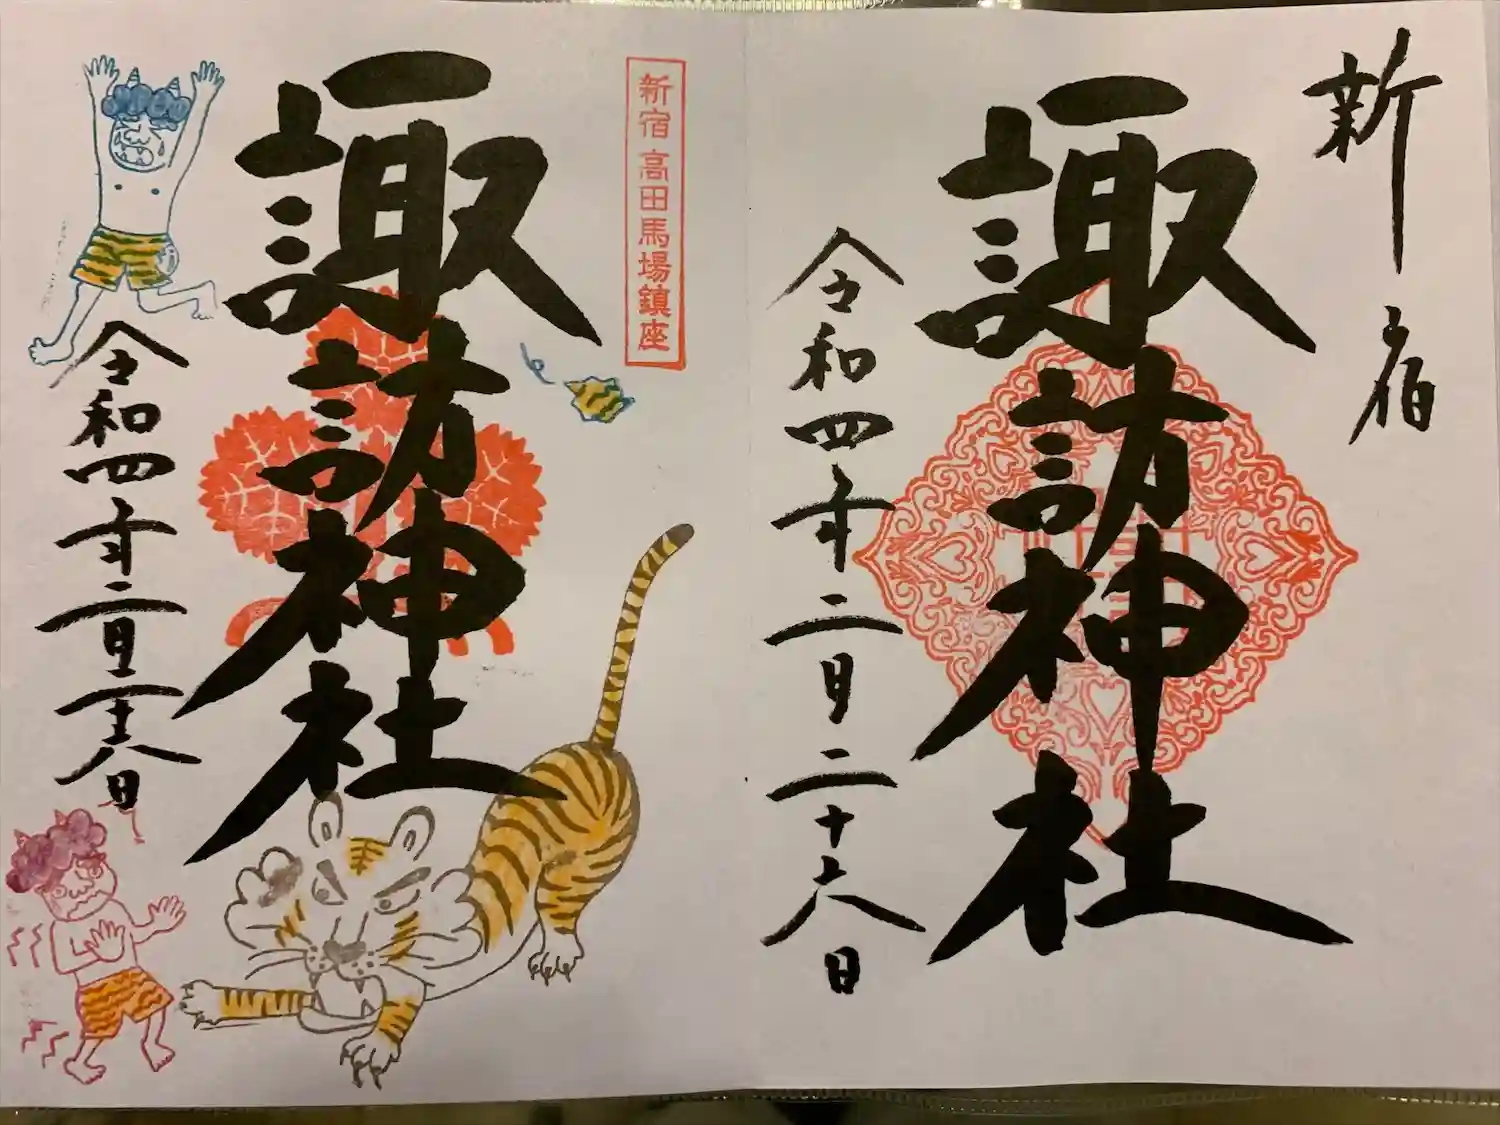 新宿
諏訪神社
令和四年二月二十六日
新宿高田馬場鎮座
諏訪神社
令和四年二月二十六日